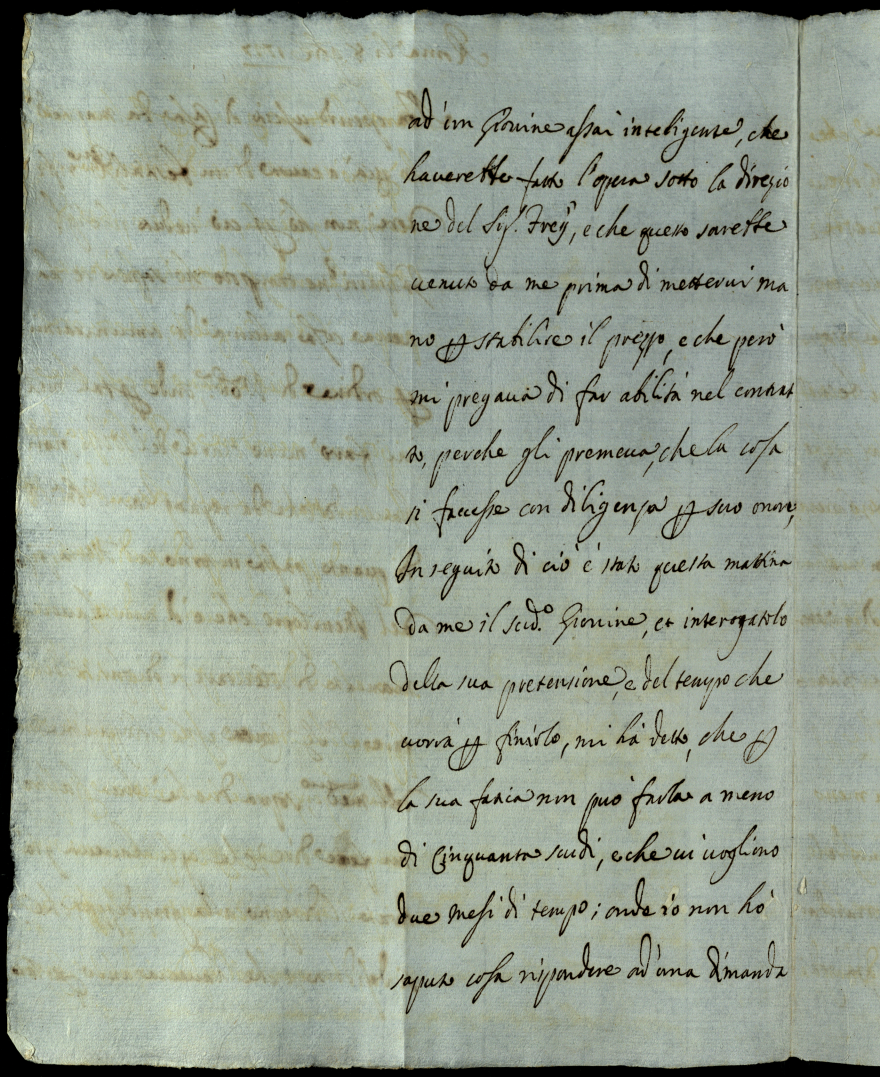 ad' un Giovine assai inteligente, che
haverebbe fatto l'opera sotto la direzio
ne del Sig.r Frey, e che questo sarebbe
venuto da me prima di mettervi ma
no per stabilire il prezzo, e che però
mi pregava di far abilità nel contrat
to, perche gli premeva, che la cosa
si facesse con diligenza per suo onore,
In seguito di ciò è stato questa mattina
da me il sud.o Giovine, et interogatolo
della sua pretensione, e del tempo che
vorrà per finirlo, mi hà detto, che per
la sua fatica non può farla a meno
di Cinquanta scudi, e che vi vogliono
due mesi di tempo; onde io non hò
saputo cosa rispondere ad' una dimanda